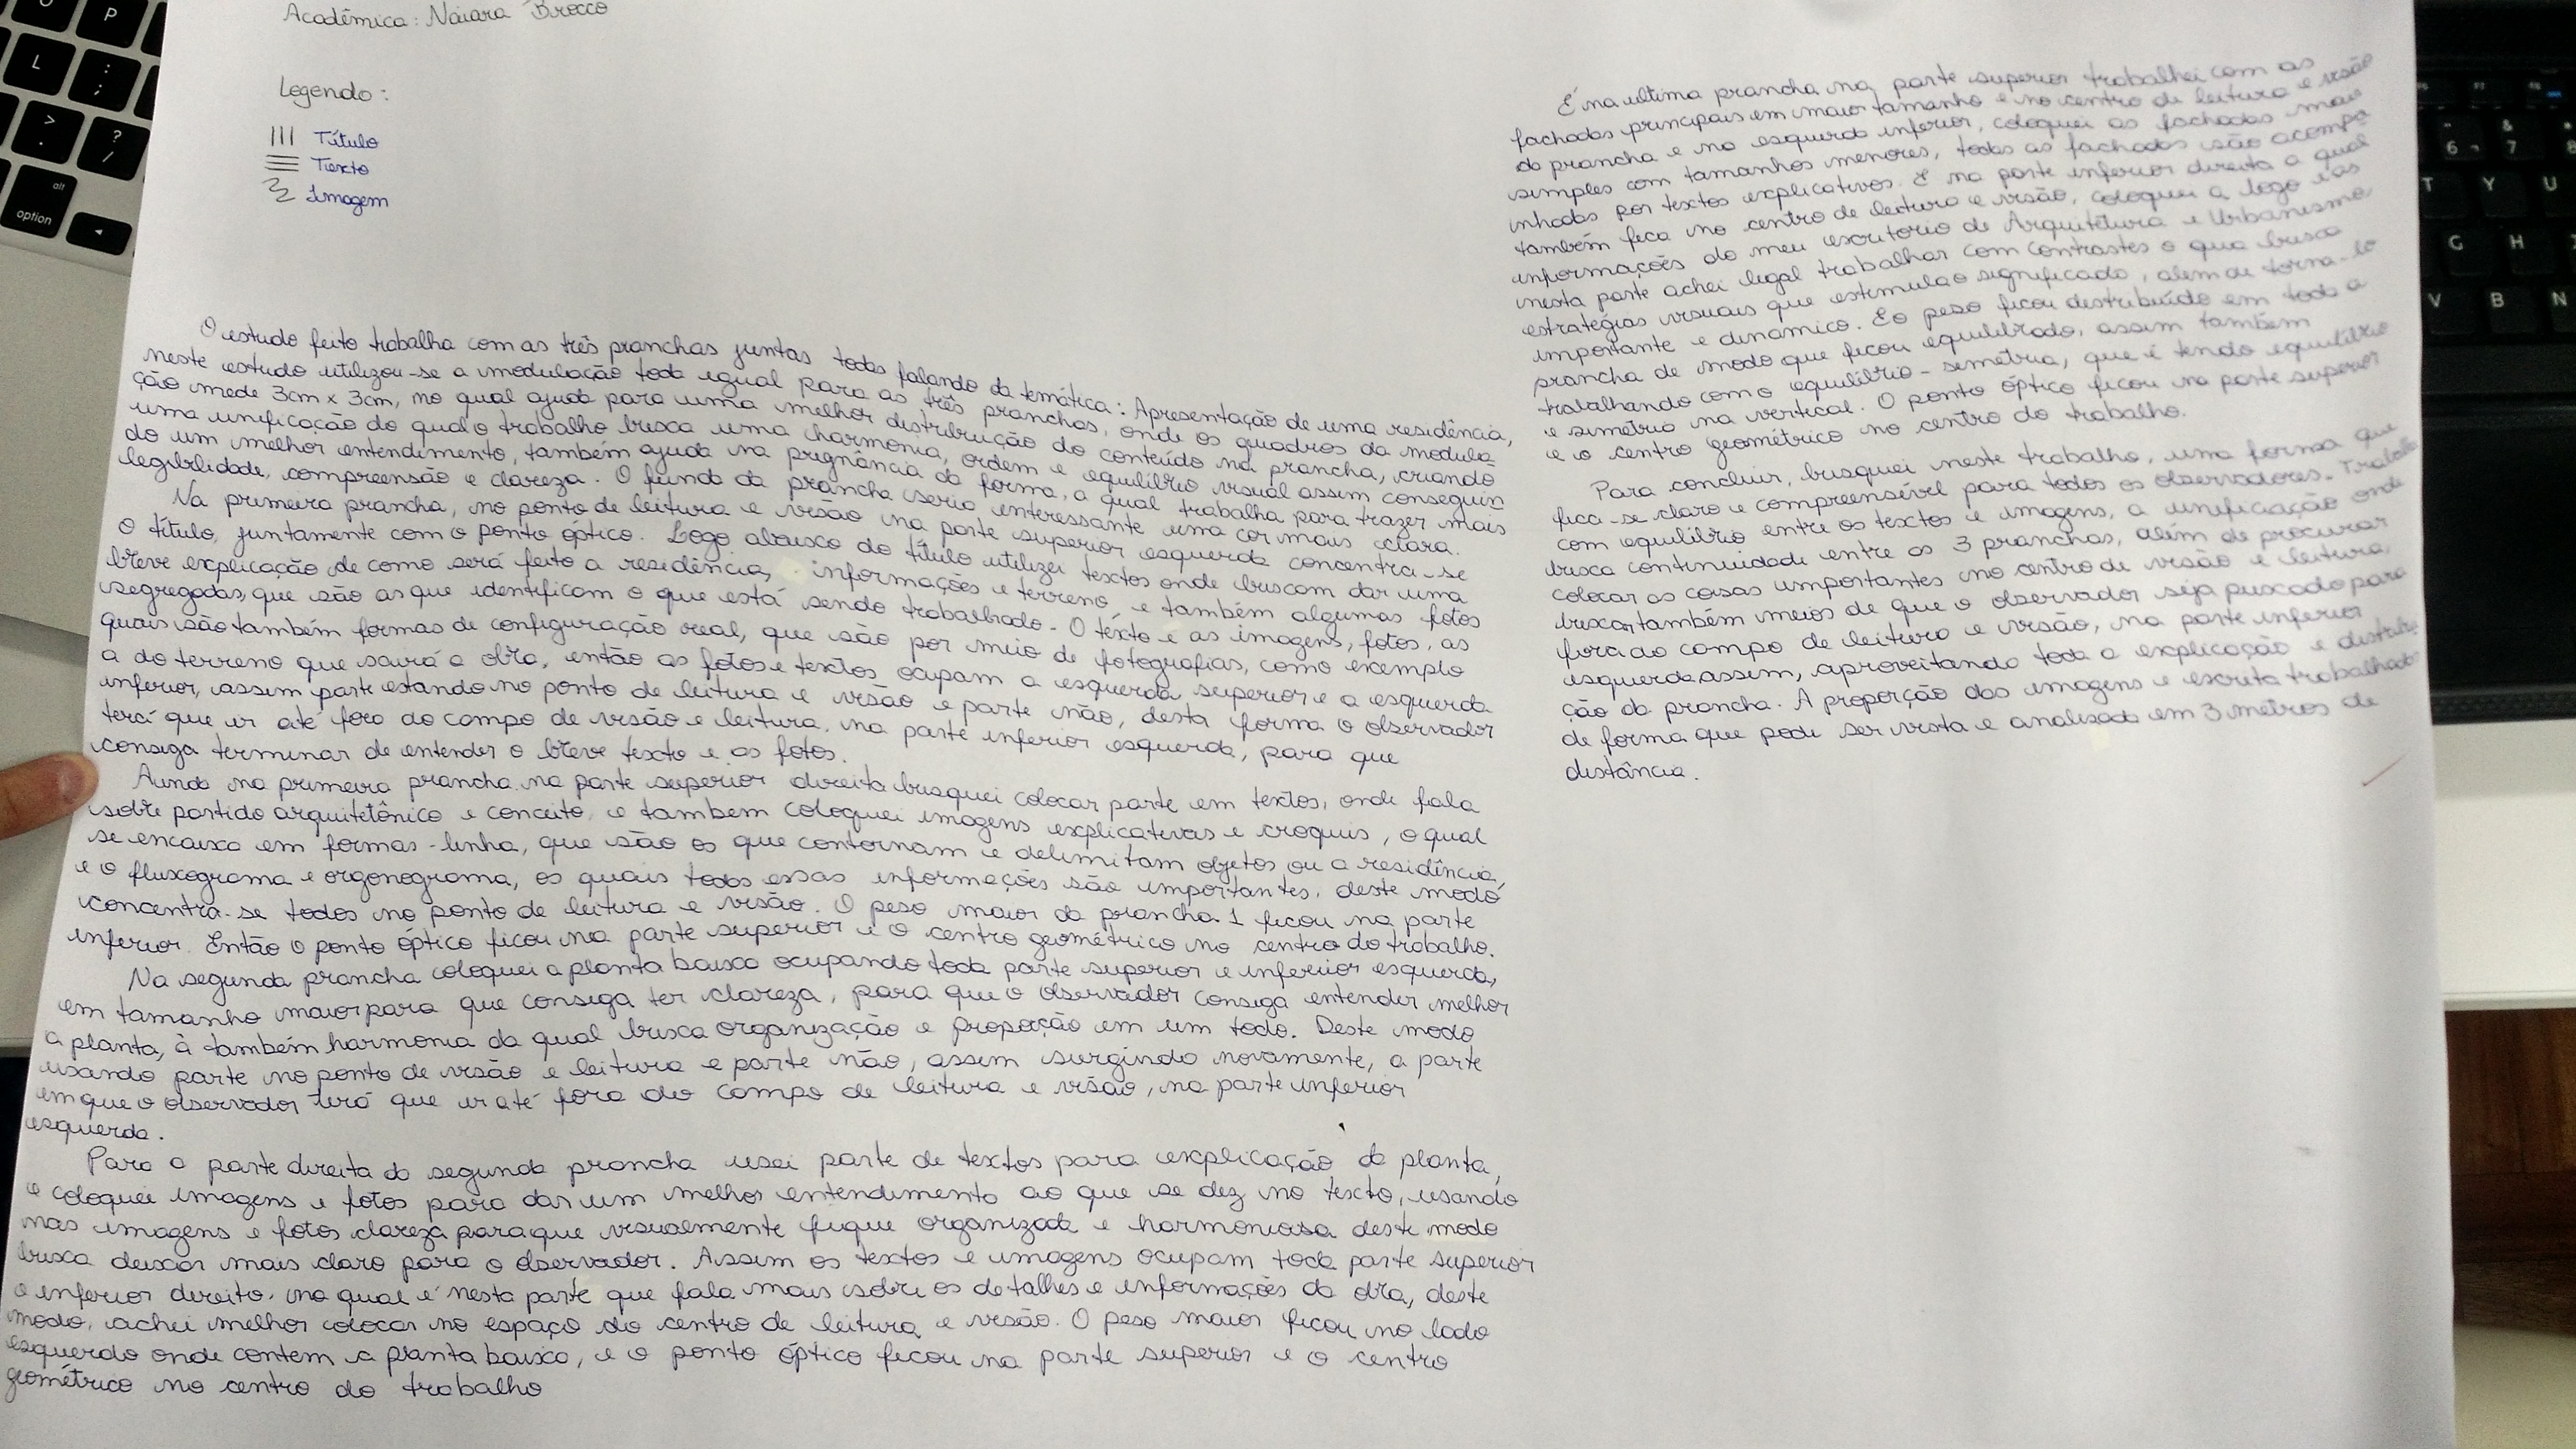 Acadêmica: Naiara Brocco
Legenda:
Título
Texto
Imagem
O estudo feito trabalha com as três pranchas juntas todas falando da temática: Apresentação de uma residência,
neste estudo utilizou-se a modulação toda igual para as três pranchas, onde os quadros da modula-
ção mede 3cm x 3cm, no qual ajuda para uma melhor distribuição do conteúdo na prancha, criando
uma unificação do qual o trabalho busca uma charmonia, ordem e equilíbrio visual assim conseguin
do um melhor entendimento, também ajuda na pregnância da forma, a qual trabalha para trazer mais
legibilidade, compreensão e clareza. O fundo da prancha seria interessante uma cor mais clara.
Na primeira prancha, no ponto de leitura e visão na parte superior esquerda concentra-se
o título, juntamente com o ponto óptico. Logo abaixo do título utilizei textos onde buscam dar uma
breve explicação de como será feito a residência, informações e terreno, e também algumas fotos
segregadas, que são as que identificam o que está sendo trabalhado. O texto e as imagens, fotos, as
quais são também formas de configuração real, que são por meio de fotografias, como exemplo
a do terreno que sairá a obra, então as fotos e textos ocupam a esquerda superior e a esquerda
inferior, assim parte estando no ponto de leitura e visão e parte não, desta forma o observador
terá que ir até fora do campo de visão e leitura, na parte inferior esquerda, para que
consiga terminar de entender o breve texto e as fotos.
Ainda na primeira prancha na parte superior direita busquei colocar parte em textos, onde fala
sobre partido arquitetônico e conceito, e também coloquei imagens explicativas e croquis, o qual
se encaixa em formas-linha, que são os que contornam e delimitam objetos ou a residência,
e o fluxograma e orgonograma, os quais todas essas informações são importantes, deste modo
concentra-se todos no ponto de leitura e visão. O peso maior da prancha 1 ficou na parte
inferior. Então o ponto óptico ficou na parte superior e o centro geométrico no centro do trabalho.
Na segunda prancha coloquei a planta baixa ocupando toda parte superior e inferior esquerda,
em tamanho maior para que consiga ter clareza, para que o observador consiga entender melhor
a planta, à também harmonia da qual busca organização e proporção em um todo. Deste modo
usando parte no ponto de visão e leitura e parte não, assim surgindo novamente, a parte
em que o observador terá que ir até fora do campo de leitura e visão, na parte inferior
esquerda.
Para a parte direita da segunda prancha usei parte de textos para explicação da planta,
e coloquei imagens e fotos para dar um melhor entendimento ao que se dez no texto, usando
nas imagens e fotos clareza para que visualmente fique organizada e harmoniosa deste modo
busca deixar mais claro para o observador. Assim os textos e imagens ocupam toda parte superior
e inferior direito, na qual é nesta parte que fala mais sobre os detalhes e informações da obra, deste
modo, achei melhor colocar no espaço do centro de leitura e visão. O peso maior ficou no lado
esquerdo onde contem a planta baixa, e o ponto óptico ficou na parte superior e o centro
geométrico no centro do trabalho
E na ultima prancha na parte superior trabalhei com as
fachadas principais em maior tamanho e no centro de leitura e visão
da prancha e na esquerda inferior, coloquei as fachadas mais
simples com tamanhos menores, todas as fachadas são acompa
inhadas por textos explicativos. E na parte inferior direita a qual
também fica no centro de leitura e visão, coloquei a logo e as
informações do meu escritorio de Arquitetura e Urbanismo,
nesta parte achei legal trabalhar com contrastes o qua busca
estratégias visuais que estimula o significado, além de torna-lo
importante e dinamico. E o peso ficou distribuído em toda a
prancha de modo que ficou equilibrado, assim também
trabalhando com o equilíbrio-simetria, que é tendo equilíbrio
e simétrio na vertical. O ponto óptico ficou na parte superior
e o centro geométrico no centro do trabalho.
Para concluir, busquei neste trabalho, uma forma que
fica-se claro e compreensível para todos os observadores. Trabalh
com equilíbrio entre os textos e imagens, a unificiação onde
busca continuidade entre as 3 pranchas, além de procurar
colocar as coisas importantes no centro de visão e leitura,
buscar também meios de que o observador seja puxado para
fora do campo de leitura e visão, na parte inferior
esquerda, assim, aproveitando toda a explicação e distribui
ção da prancha. A proporção das imagens e escrita trabalhada
de forma que pode ser vista e analisada em 3 metros de
distância.